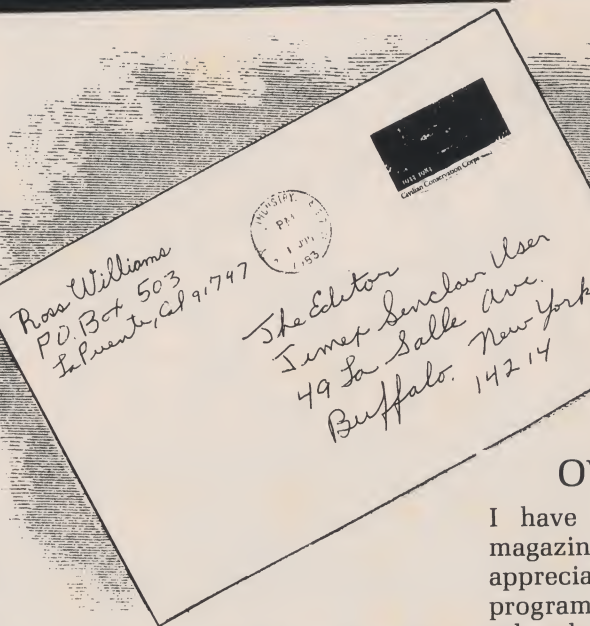 Ross Williams
P.O. Box 503
La Puente, Ca 91747
INDUSTRY,
PM
1983
1933 1983
Civilian Conservation Corps
The Editor
Timex Sinclair User
49 La Salle Ave.
Buffalo. New York
14214
I have
magazin
apprecia
program